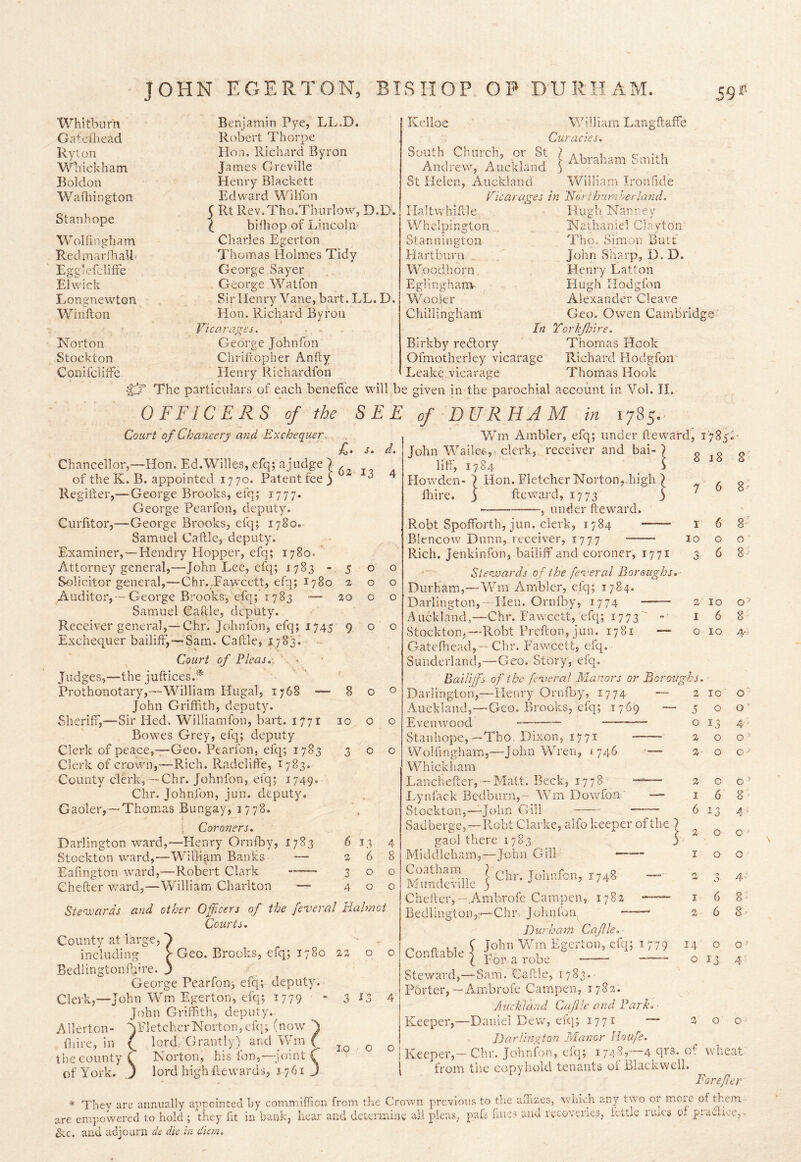 JOHN EGERTON, BISHOP OF DURHAM. 59
Whitburn Benjamin Pye, LL.D.
Gateshead Robert Thorpe
Ryton Hon. Richard Byron
Whickham James Greville
Boldon Henry Blackett
Washington Edward Wilson
Stanhope { Rt Rev. Tho. Thurlow, D.D. bishop of Lincoln
Wolsingham Charles Egerton
Redmarshall Thomas Holmes Tidy
Egglescliffe George Sayer
Elwick George Watson
Longnewton Sir Henry Vane, bart. LL. D.
Winston Hon. Richard Byron
Vicarages.
Norton George Johnson
Stockton Christopher Ansty
Coniscliffe Henry Richardson
Kelloe William Langstaffe
Curacies.
South Church, or St Andrew, Auckland } Abraham Smith
St Helen, Auckland William Ironside
Vicarages in Northumberland.
Haltwhistle Hugh Nanney
Whelpington Nathaniel Clayton
Stannington Tho. Simon Butt
Hartburn John Sharp, D. D.
Woodhorn Henry Latton
Eglingham Hugh Hodgson
Wooler Alexander Cleave
Chillingham Geo. Owen Cambridge
In Yorkshire.
Birkby rectory Thomas Hook
Osmotherley vicarage Richard Hodgson
Leake vicarage Thomas Hook
☞ The particulars of each benefice will be given in the parochial account in Vol. II.
OFFICERS of the SEE of DURHAM in 1785.
Court of Chancery and Exchequer.
£. s. d.
Chancellor,—Hon. Ed. Willes, esq; a judge
of the K. B. appointed 1770. Patent fee } 62 13 4
Register,—George Brooks, esq; 1777.
George Pearson, deputy.
Cursitor,—George Brooks, esq; 1780.
Samuel Castle, deputy.
Examiner,—Hendry Hopper, esq; 1780.
Attorney general,—John Lee, esq; 1783 - 5 0 0
Solicitor general,—Chr. Fawcett, esq; 1780 2 0 0
Auditor,—George Brooks, esq; 1783 — 20 0 0
Samuel Castle, deputy.
Receiver general,—Chr. Johnson, esq; 1745 9 0 0
Exchequer bailiff,—Sam. Castle, 1783.
Court of Pleas.
Judges,—the justices.*
Prothonotary,—William Hugal, 1768 — 8 0 0
John Griffith, deputy.
Sheriff,—Sir Hed. Williamson, bart. 1771 10 0 0
Bowes Grey, esq; deputy
Clerk of peace,—Geo. Pearson, esq; 1783 3 0 0
Clerk of crown,—Rich. Radcliffe, 1783.
County clerk,—Chr. Johnson, esq; 1749.
Chr. Johnson, jun. deputy.
Gaoler,—Thomas Bungay, 1778.
Coroners.
Darlington ward,—Henry Ornsby, 1783 6 13 4
Stockton ward,—William Banks — 2 6 8
Easington ward,—Robert Clark —— 3 0 0
Chester ward,—William Charlton — 4 0 0
Stewards and other Officers of the several Halmot
Courts.
County at large,
including
Bedlingtonshire. } Geo. Brooks, esq; 1780 22 0 0
George Pearson, esq; deputy.
Clerk,—John Wm Egerton, esq; 1779 - 3 13 4
John Griffith, deputy.
Allerton- } Fletcher Norton, esq; (now
shire, in lord Grantly) and Wm
the county Norton, his son,—joint
of York. lord high stewards, 1761 } 10 0 0
Wm Ambler, esq; under steward, 1785.
John Wailes, clerk, receiver and bai-
liff, 1784 } 8 18 8
Howden- } Hon. Fletcher Norton, high
shire. steward, 1773 } 7 6 8
———, under steward.
Robt Spofforth, jun. clerk, 1784 —— 1 6 8
Blencow Dunn, receiver, 1777 —— 10 0 0
Rich. Jenkinson, bailiff and coroner, 1771 3 6 8
Stewards of the several Boroughs.
Durham,—Wm Ambler, esq; 1784.
Darlington,—Hen. Ornsby, 1774 —— 2 10 0
Auckland,—Chr. Fawcett, esq; 1773 - 1 6 8
Stockton,—Robt Preston, jun. 1781 — 0 10 4
Gateshead,—Chr. Fawcett, esq.
Sunderland,—Geo. Story, esq.
Bailiffs of the several Manors or Boroughs.
Darlington,—Henry Ornsby, 1774 — 2 10 0
Auckland,—Geo. Brooks, esq; 1769 — 5 0 0
Evenwood —— —— 0 13 4
Stanhope,—Tho. Dixon, 1771 —— 2 0 0
Wolsingham,—John Wren, 1746 — 2 0 0
Whickham
Lanchester,—Matt. Beck, 1778 —— 2 0 0
Lynsack Bedburn,—Wm Dowson — 1 6 8
Stockton,—John Gill —— —— 6 13 4
Sadberge,—Robt Clarke, also keeper of the
gaol there 1783 } 2 0 0
Middleham,—John Gill —— 1 0 0
Coatham
Mundeville } Chr. Johnson, 1748 — 2 3 4
Chester,—Ambrose Campen, 1782 —— 1 6 8
Bedlington,—Chr. Johnson —— 2 6 8
Durham Castle.
Constable { John Wm Egerton, esq; 1779 14 0 0
For a robe —— —— 0 13 4
Steward,—Sam. Castle, 1783.
Porter,—Ambrose Campen, 1782.
Auckland Castle and Park.
Keeper,—Daniel Dew, esq; 1771 — 2 0 0
Darlington Manor House.
Keeper,—Chr. Johnson, esq; 1748,—4 qrs. of wheat
from the copyhold tenants of Blackwell.
Forester
* They are annually appointed by commission from the Crown previous to the assizes, which any two or more of them
are empowered to hold; they sit in bank, hear and determine all pleas, pass fines and recoveries, settle rules of practice,
&c. and adjourn de die in diem.